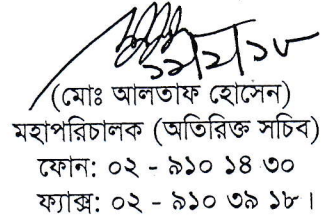 ১২/২/১৮
(মোঃ আলতাফ হোসেন)
মহাপরিচালক (অতিরিক্ত সচিব)
ফোন: ০২ - ৯১০ ১৪ ৩০
ফ্যাক্স: ০২ - ৯১০ ৩৯ ১৮ ।